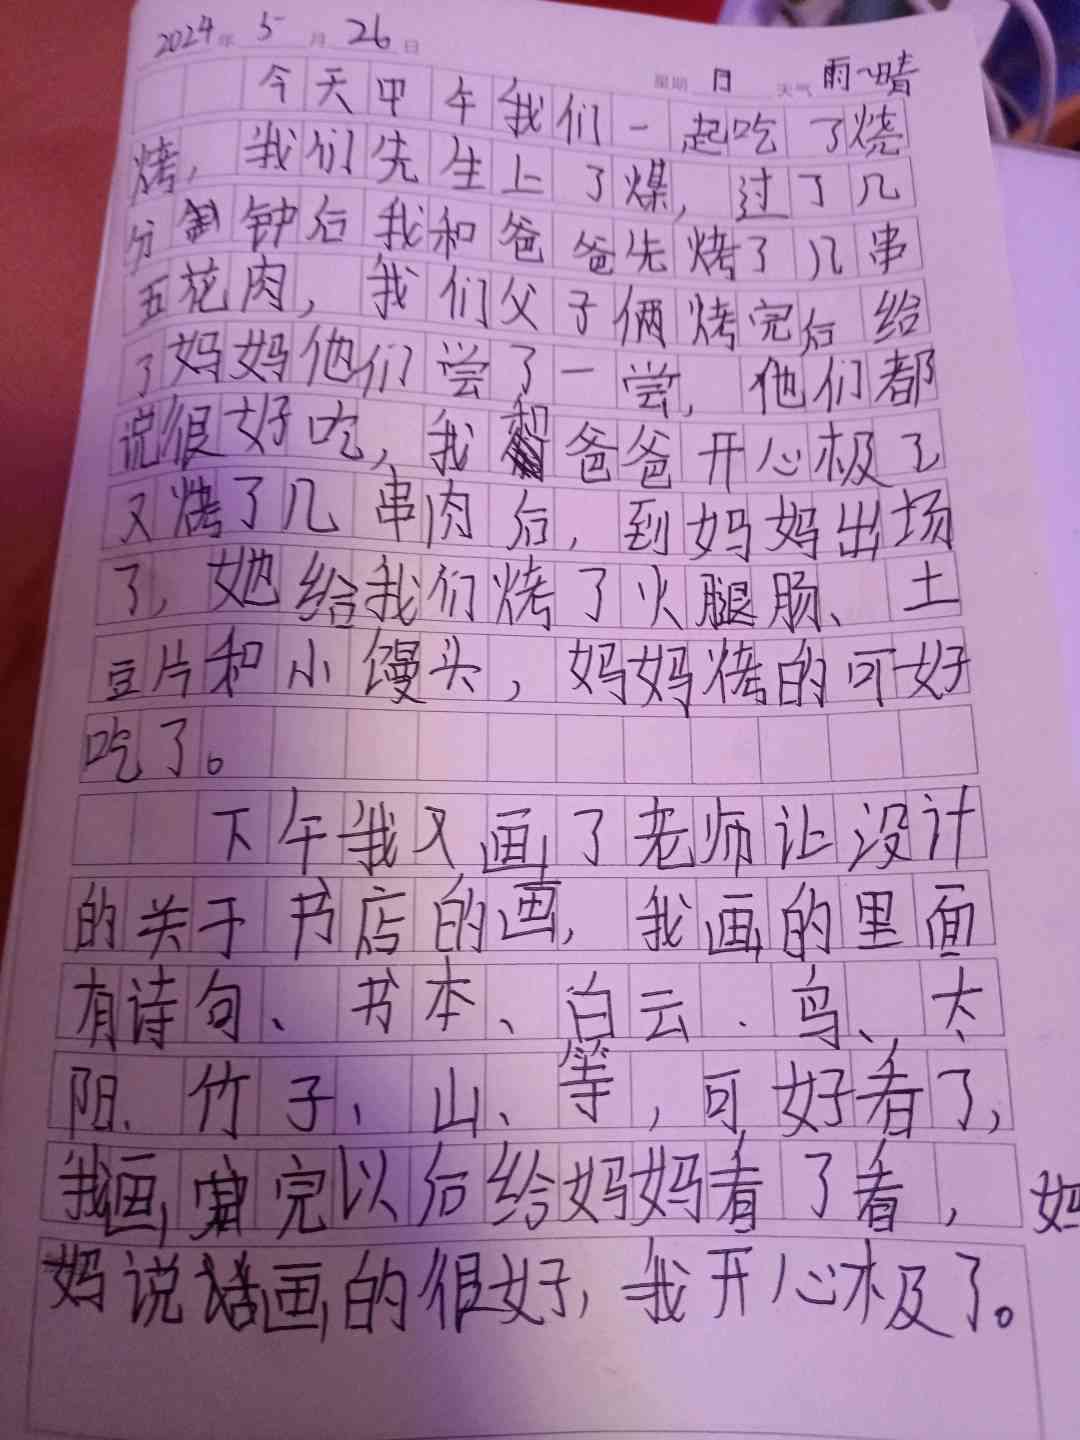 2024年5月26日 星期日 天气雨~晴
今天中午我们一起吃了烧
烤,我们先生上了煤,过了几
分钟后我和爸爸先烤了几串
五花肉,我们父子俩烤完后给
了妈妈他们尝了一尝,他们都
说很好吃,我和爸爸开心极了
又烤了几串肉后,到妈妈出场
了,她给我们烤了火腿肠、土
豆片和小馒头,妈妈烤的可好
吃了。
下午我又画了老师让设计
的关于书店的画,我画的里面
有诗句、书本、白云、鸟、太
阳、竹子、山、等,可好看了,
我画完以后给妈妈看了看,妈
妈说画的很好,我开心极了。